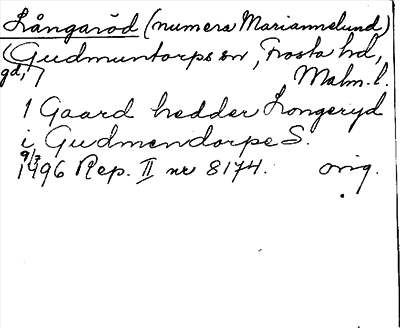 Långaröd (numera Mariannelund)
(Gudmuntorps sn, Frosta hd,
gd,) Malm. l.
1 Gaard hedder Longeryd
i Gudmendorpe S.
9/3
1496 Rep. II nr 8174. orig.